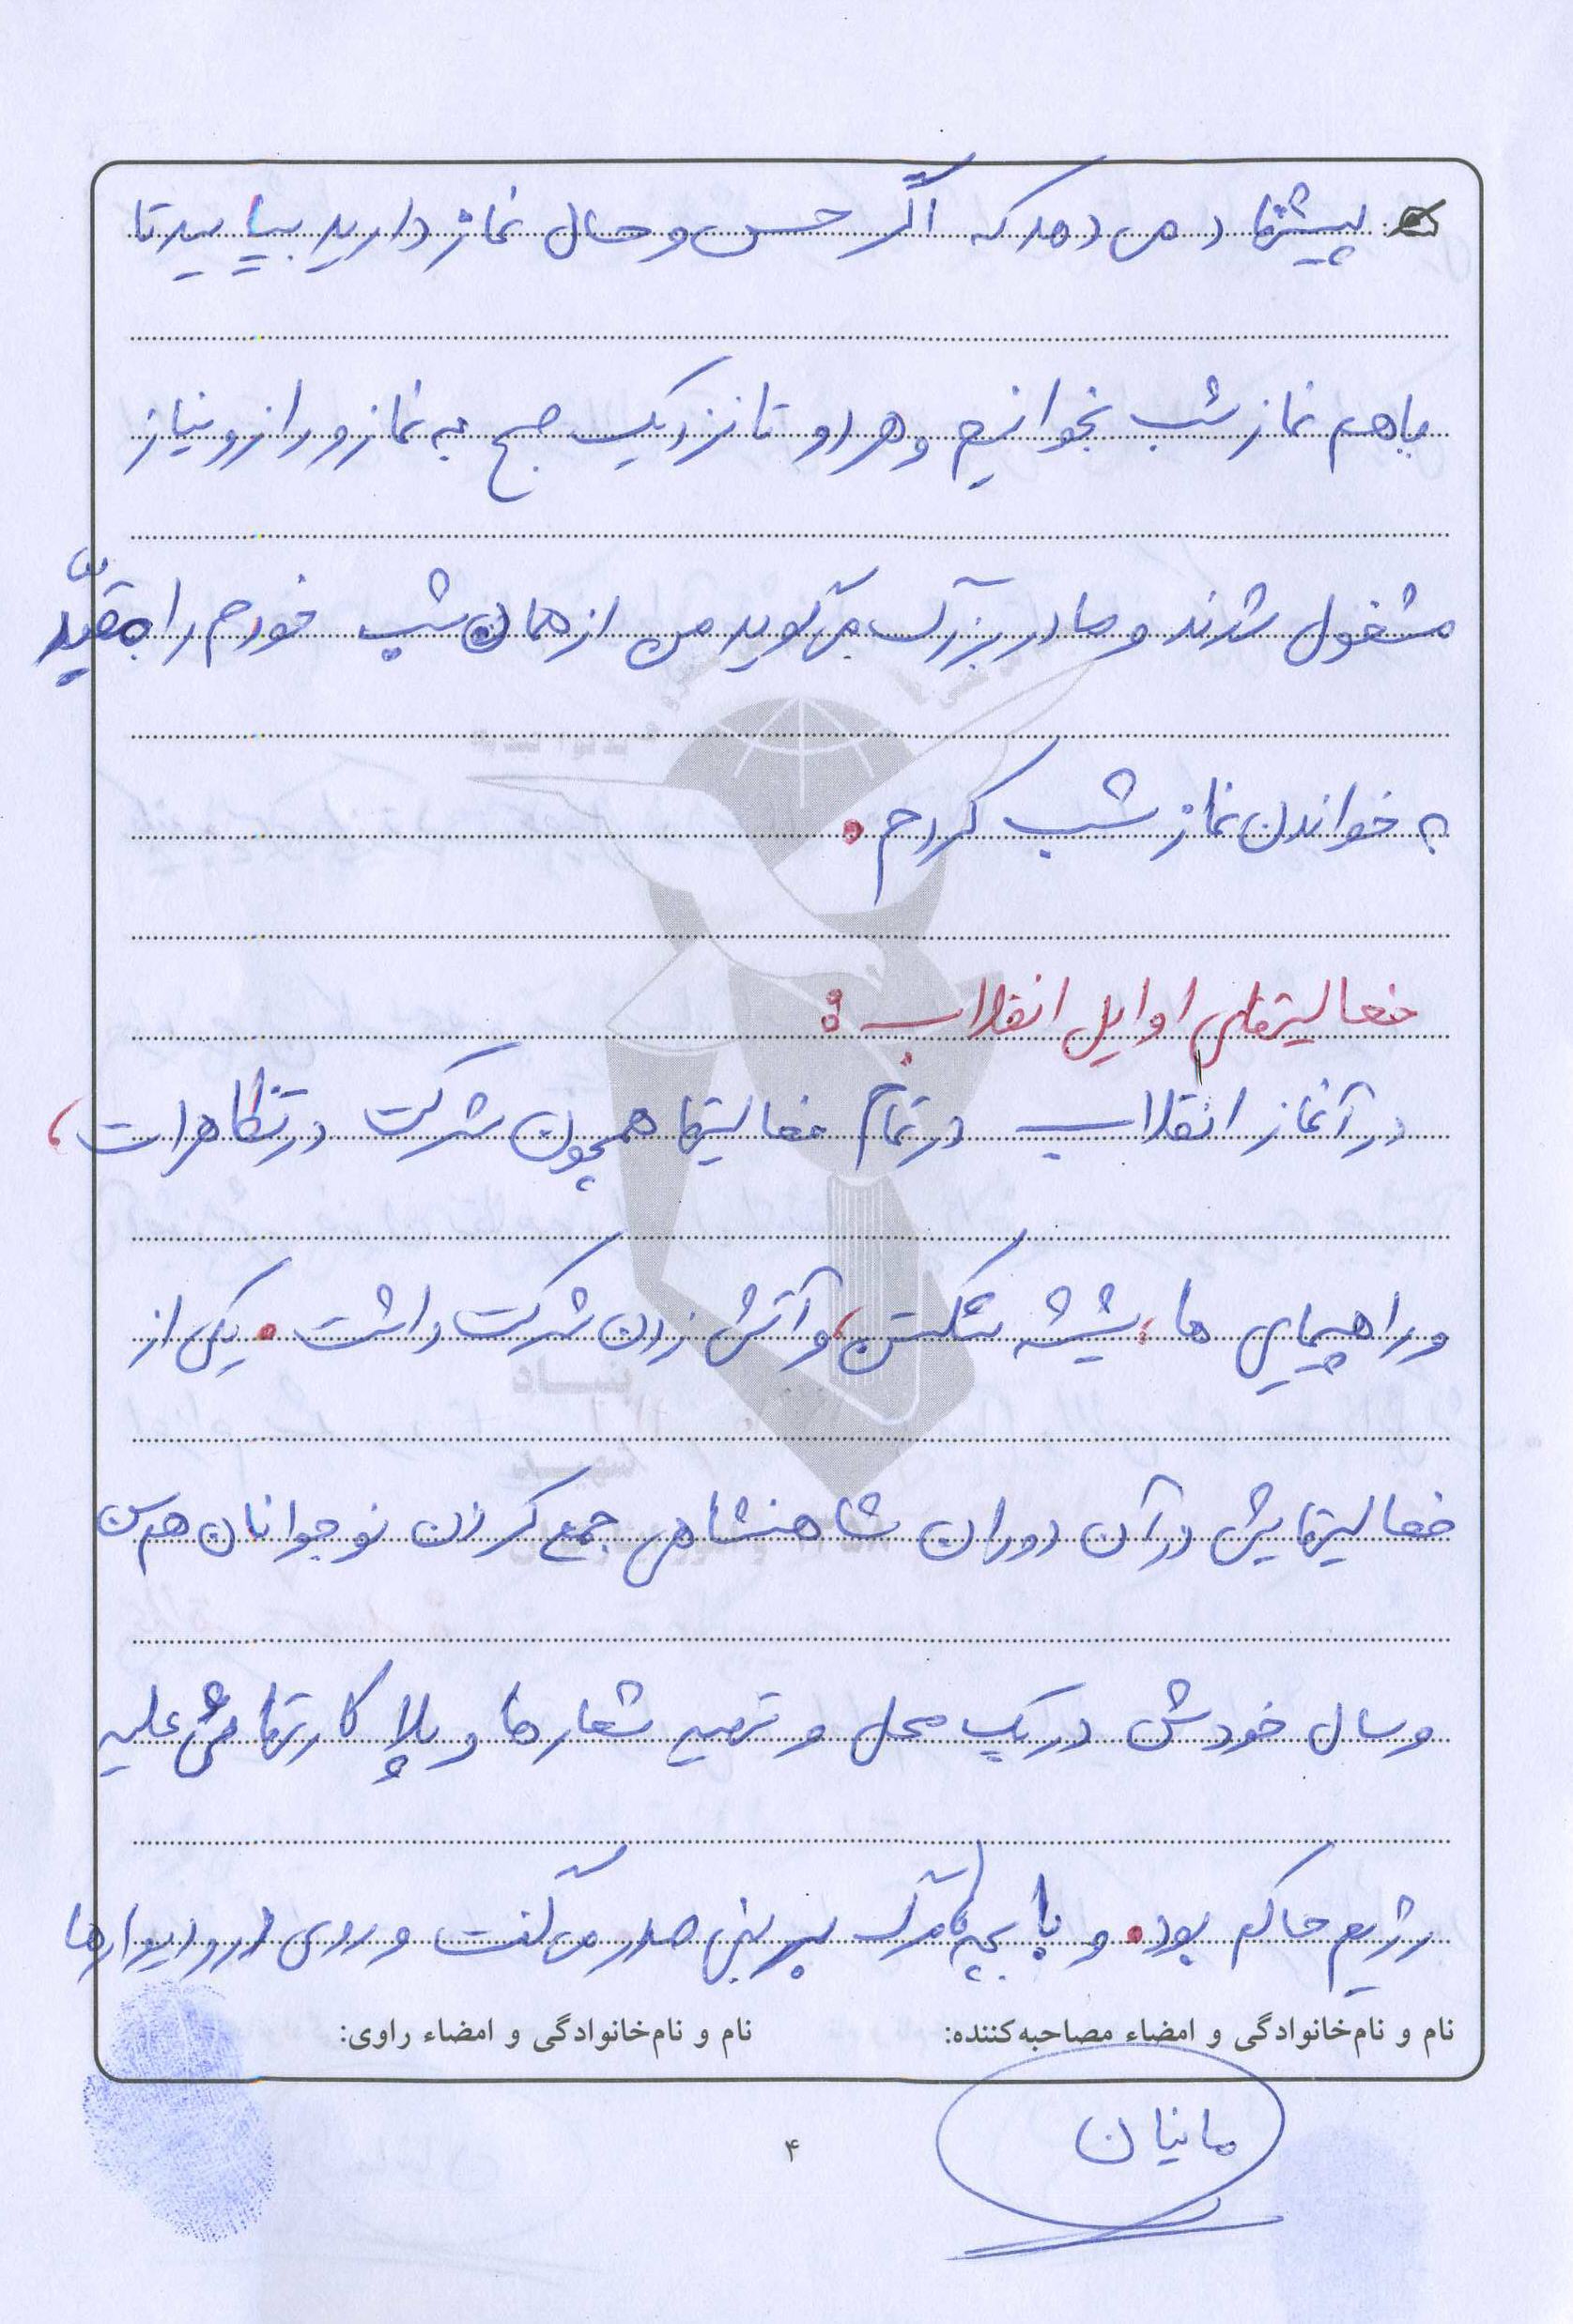 پیشنهاد می دهد که اگر حس و حال نماز دارید بیایید تا
باهم نماز شب بخوانیم و هر دو تا نزدیک صبح به نماز و راز و نیاز
مشغول شدند و مادر بزرگ می گوید من از همان شب خودم را مقیّد
به خواندن نماز شب کردم .
فعالیتهای اوایل انقلاب :
در آغاز انقلاب در تمام فعالیتها همچون شرکت در تظاهرات ،
و راهپیمایی ها ، شیشه شکستن ، و آتش زدن شرکت داشت . یکی از
فعالیتهایش در آن دوران شاهنشاهی جمع کردن نوجوانان هم سن
و سال خودش در یک محل و ترتیب شعارها و پلاکارتهائی علیه
رژیم حاکم بود . و با بچه ها مرگ بر بنی صدر می گفت و روی در و دیوارها
نام و نام‌خانوادگی و امضاء مصاحبه‌کننده:
نام و نام‌خانوادگی و امضاء راوی:
مانیان
۴
بنیاد
شهید